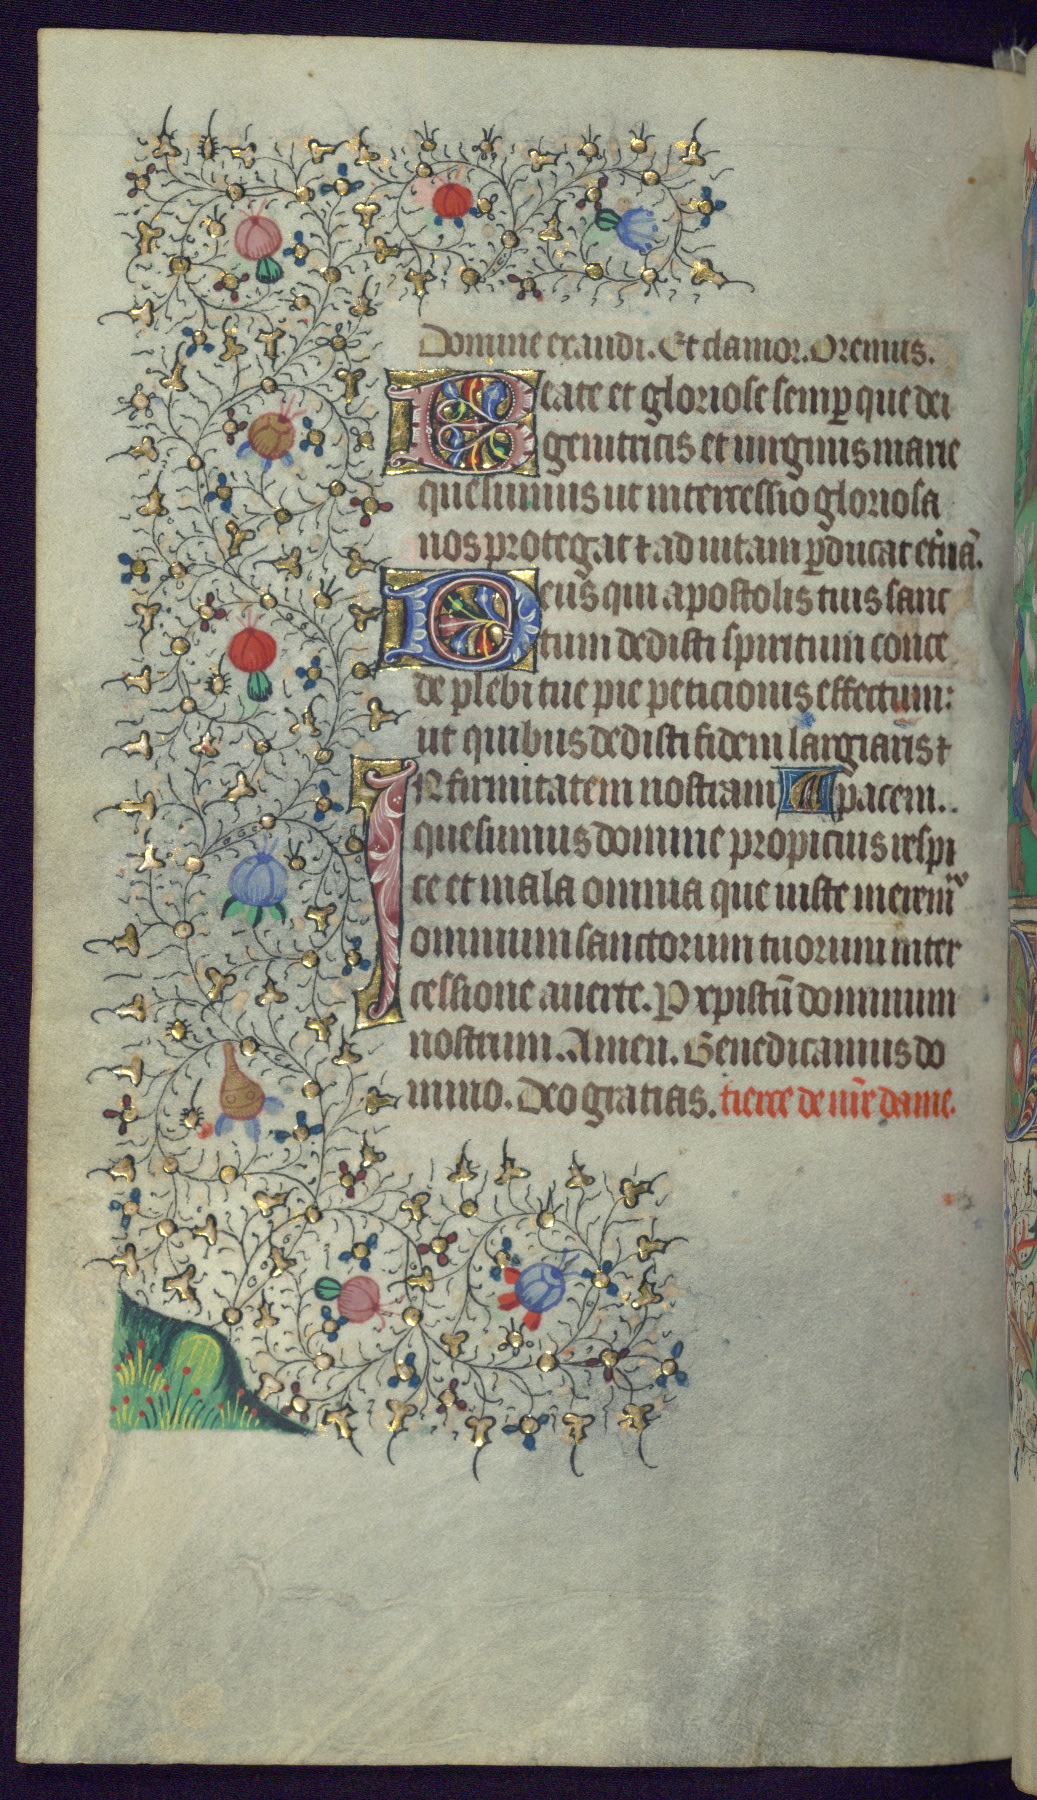 Domine exaudi. Et clamor. Oremus.
Beate et gloriose semp̱ que dei
genitricis et uirginis marie
quesumus ut intercessio gloriosa
nos protegat ⁊ ad uitam p̱ducat et̾nā.
Deus qui apostolis tuis sanc
tum dedisti spiritum conce
de plebi tue pie peticionis effectum:
ut quibus dedisti fidem largiaris ⁊
Nfirmitatem nostram A pacem.
quesumus domine propicius respi
ce et mala omnia que iuste meremᷣ
omnium sanctorum tuorum inter
cessione auerte. P xpistū dominum
nostrum. Amen. Benedicamus do
mino. Deo gratias. tierce de nr̄e dame.